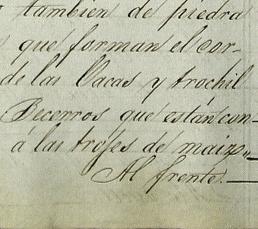 tambien de piedra
que forman el cor-
de las Vacas y trochil
Becerros que están con-
á las trojes de maiz,,
Al frente.